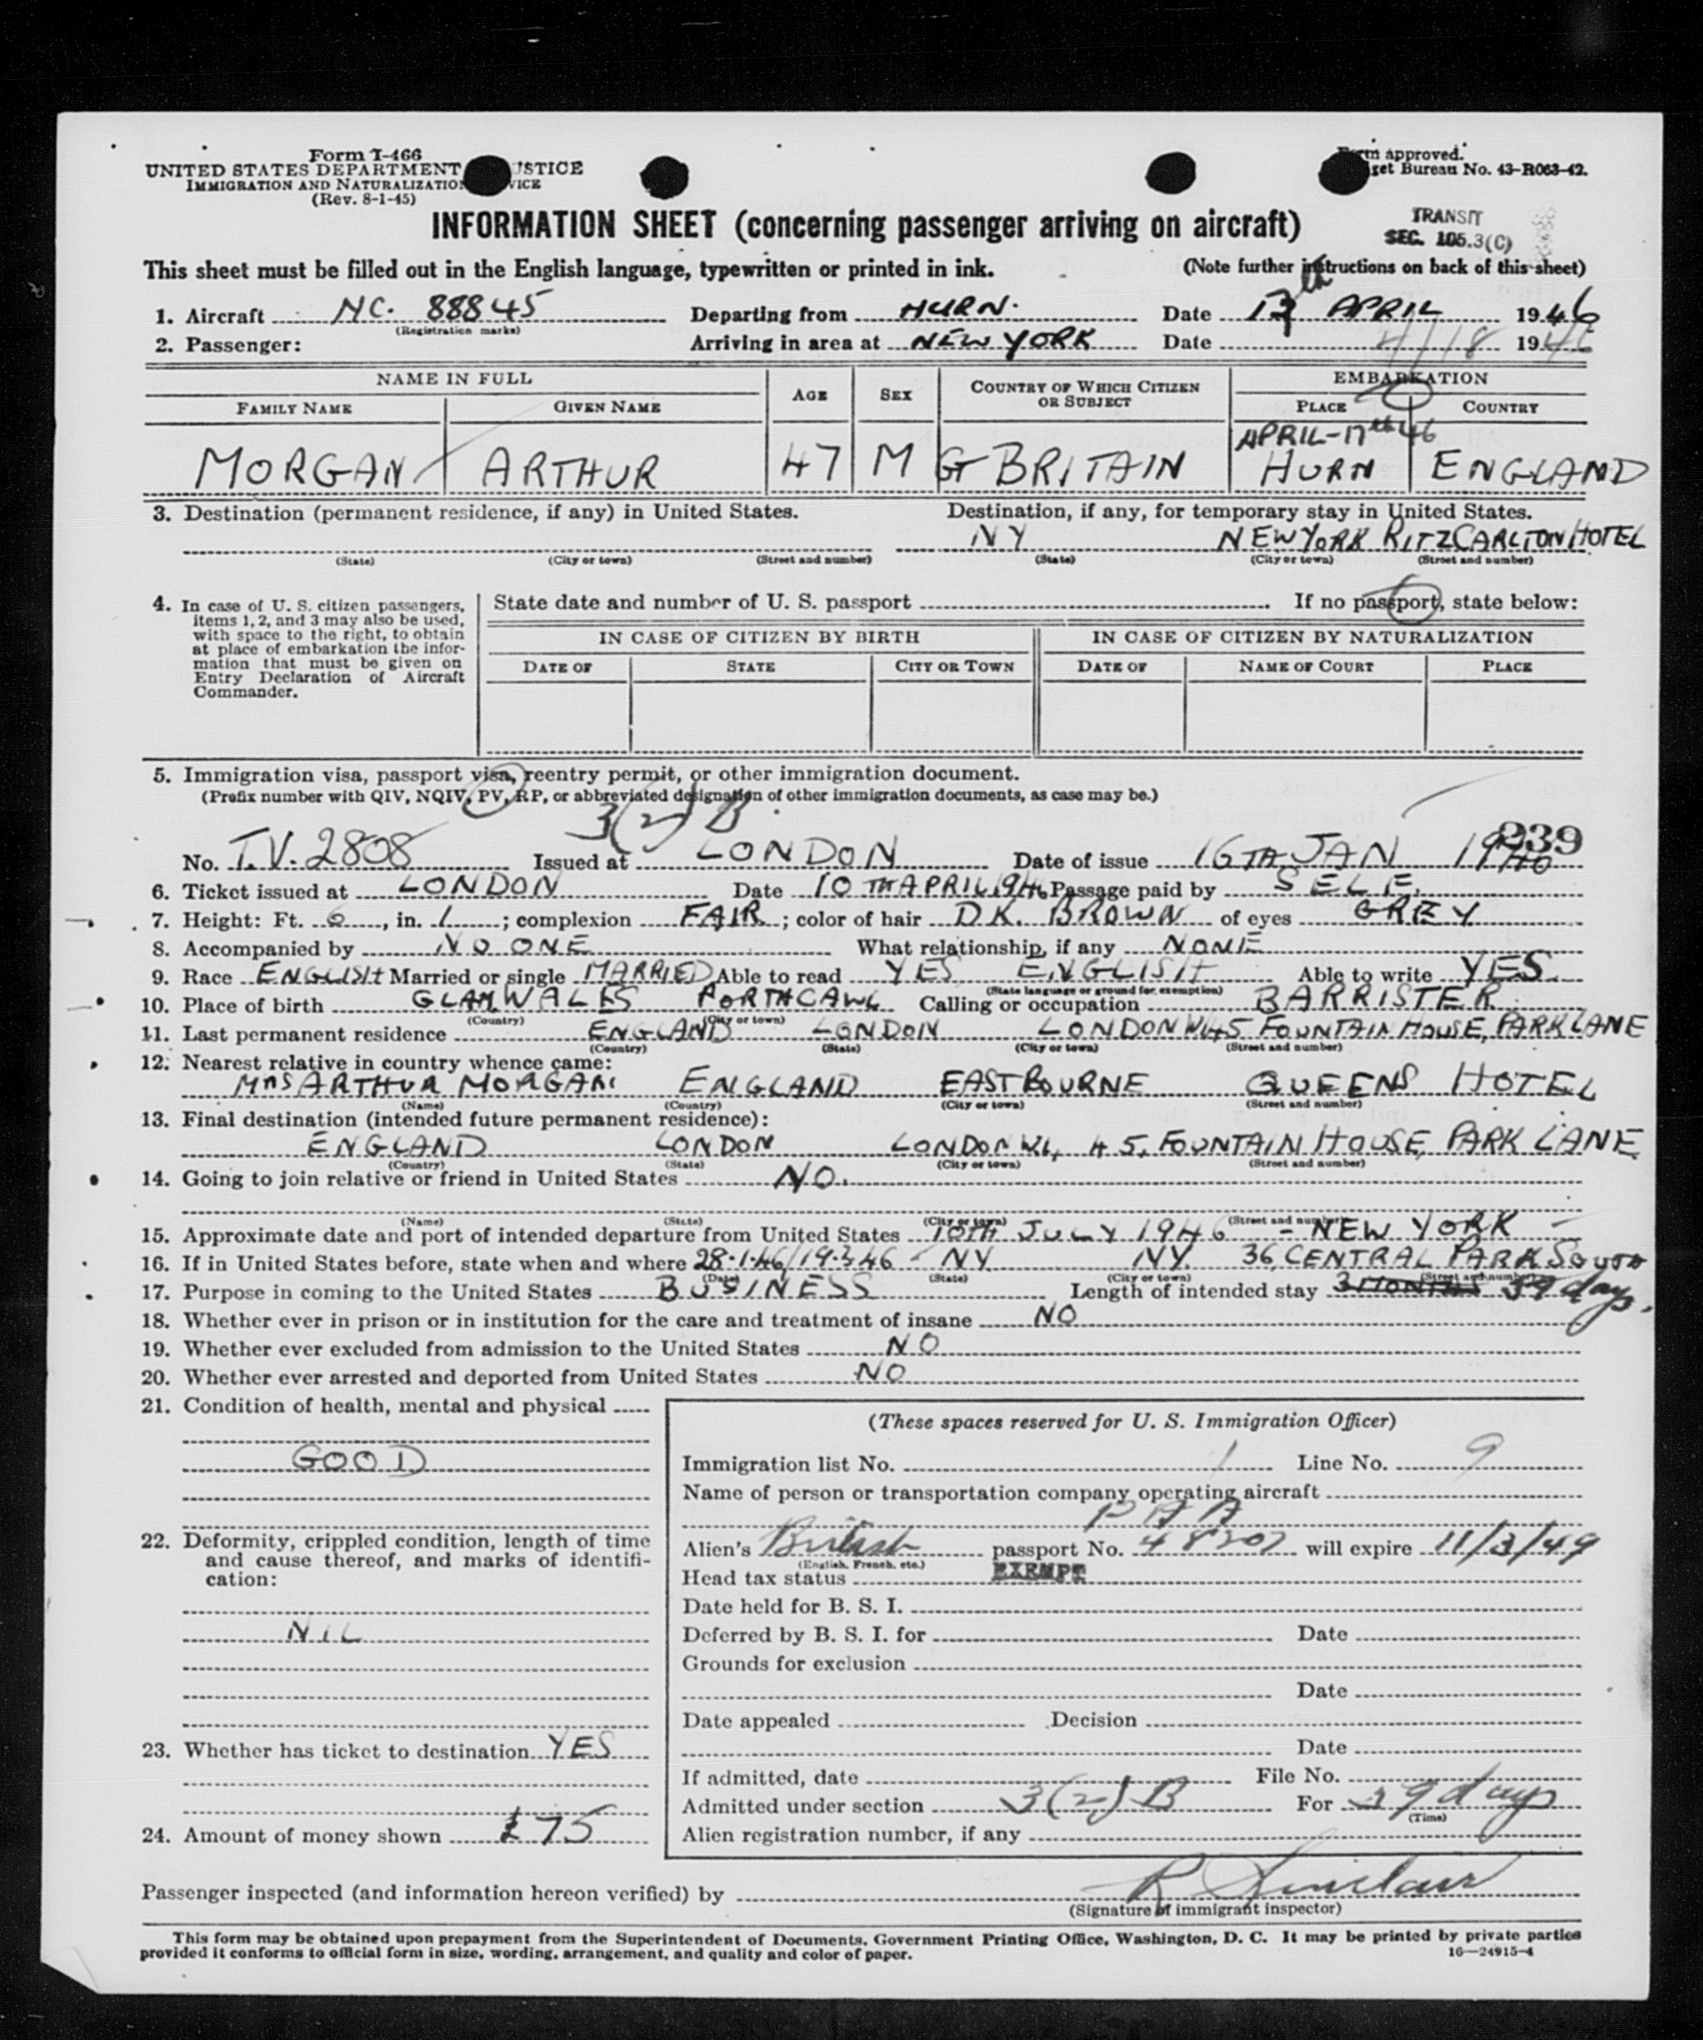 Form I-466
UNITED STATES DEPARTMENT JUSTICE
IMMIGRATION AND NATURALIZATION SERVICE
(Rev. 8-1-45)
Form approved.
Budget Bureau No. 43-R063-42.
INFORMATION SHEET (concerning passenger arriving on aircraft)
TRANSIT
SEC. 105.3(C)
This sheet must be filled out in the English language, typewritten or printed in ink. (Note further instructions on back of this sheet)
1. Aircraft NC. 88845 Departing from HURN. Date 17th APRIL 1946
(Registration marks)
2. Passenger: Arriving in area at NEW YORK Date 4/18 1946
NAME IN FULL AGE SEX COUNTRY OF WHICH CITIZEN OR SUBJECT EMBARKATION
FAMILY NAME GIVEN NAME PLACE COUNTRY
APRIL-17th 46
MORGAN ARTHUR 47 M GT BRITAIN HURN ENGLAND
3. Destination (permanent residence, if any) in United States. Destination, if any, for temporary stay in United States.
NY NEW YORK RITZ CARLTON HOTEL
(State) (City or town) (Street and number) (State) (City or town) (Street and number)
4. In case of U. S. citizen passengers,
items 1, 2, and 3 may also be used,
with space to the right, to obtain
at place of embarkation the infor-
mation that must be given on
Entry Declaration of Aircraft
Commander.
State date and number of U. S. passport If no passport, state below:
IN CASE OF CITIZEN BY BIRTH IN CASE OF CITIZEN BY NATURALIZATION
DATE OF STATE CITY OR TOWN DATE OF NAME OF COURT PLACE
5. Immigration visa, passport visa, reentry permit, or other immigration document.
(Prefix number with QIV, NQIV, PV, RP, or abbreviated designation of other immigration documents, as case may be.)
3(2) B
239
No. T.V. 2808 Issued at LONDON Date of issue 16TH JAN 1946
6. Ticket issued at LONDON Date 10TH APRIL 1946 Passage paid by SELF.
7. Height: Ft. 6, in. 1; complexion FAIR; color of hair DK. BROWN of eyes GREY
8. Accompanied by NO ONE What relationship, if any NONE
9. Race ENGLISH Married or single MARRIED Able to read YES ENGLISH Able to write YES
(State language or ground for exemption)
10. Place of birth GLAM WALES PORTHCAWL Calling or occupation BARRISTER
(Country) (City or town)
11. Last permanent residence ENGLAND LONDON LONDON W1 45 FOUNTAIN HOUSE, PARK LANE
(Country) (State) (City or town) (Street and number)
12. Nearest relative in country whence came:
MRS ARTHUR MORGAN ENGLAND EASTBOURNE QUEENS HOTEL
(Name) (Country) (City or town) (Street and number)
13. Final destination (intended future permanent residence):
ENGLAND LONDON LONDON W1, 45, FOUNTAIN HOUSE, PARK LANE
(Country) (State) (City or town) (Street and number)
14. Going to join relative or friend in United States NO.
(Name) (State) (City or town) (Street and number)
15. Approximate date and port of intended departure from United States 10TH JULY 1946 - NEW YORK
16. If in United States before, state when and where 28.1.46/19.3.46 - NY NY. 36, CENTRAL PARK SOUTH
(Date) (State) (City or town) (Street and number)
17. Purpose in coming to the United States BUSINESS Length of intended stay 3 MONTHS 59 days.
18. Whether ever in prison or in institution for the care and treatment of insane NO
19. Whether ever excluded from admission to the United States NO
20. Whether ever arrested and deported from United States NO
21. Condition of health, mental and physical
GOOD
22. Deformity, crippled condition, length of time
and cause thereof, and marks of identifi-
cation:
NIL
23. Whether has ticket to destination YES
24. Amount of money shown £75
(These spaces reserved for U. S. Immigration Officer)
Immigration list No. 1 Line No. 9
Name of person or transportation company operating aircraft
PAA
Alien's British passport No. 48207 will expire 11/3/49
(English, French, etc.)
Head tax status EXEMPT
Date held for B. S. I.
Deferred by B. S. I. for Date
Grounds for exclusion
Date
Date appealed Decision
Date
If admitted, date File No.
Admitted under section 3(2) B For 59 days
(Time)
Alien registration number, if any
Passenger inspected (and information hereon verified) by R Sinclair
(Signature of immigrant inspector)
This form may be obtained upon prepayment from the Superintendent of Documents, Government Printing Office, Washington, D. C. It may be printed by private parties
provided it conforms to official form in size, wording, arrangement, and quality and color of paper. 16—24915-4